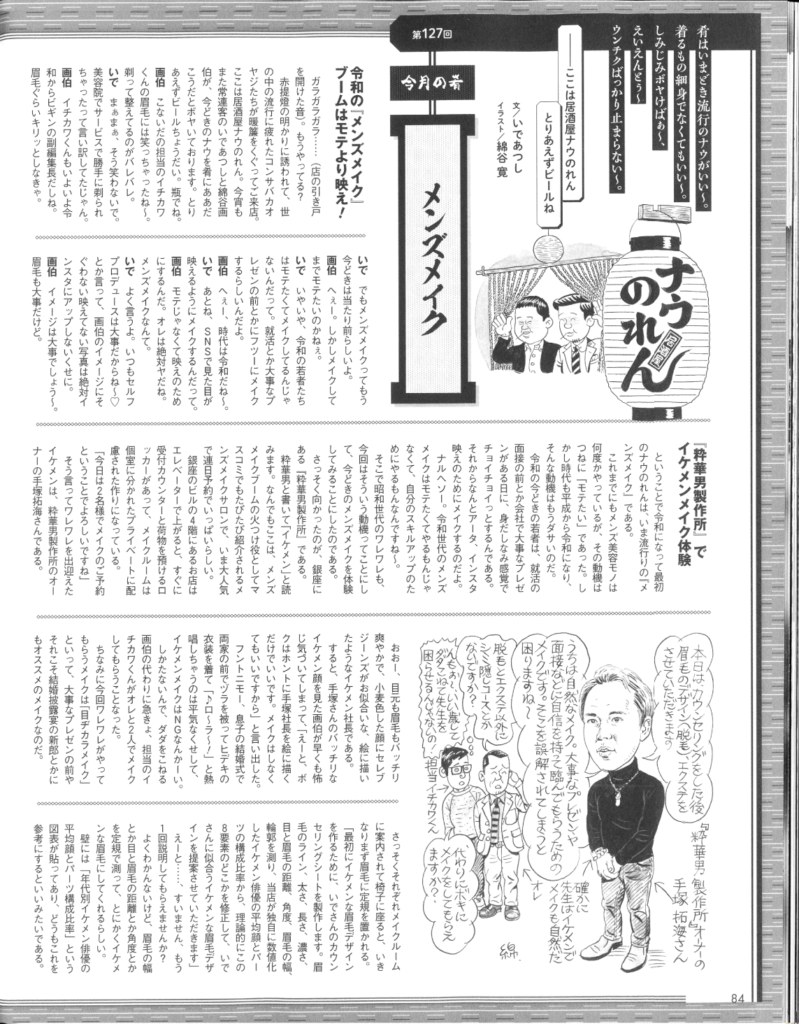 第127回
肴はいまどき流行のナウがいい〜。
着るもの細身でなくてもいい〜。
しみじみボヤけばぁ〜、
えいえんとぅ〜
ウンチクばっかり止まらない〜。
──ここは居酒屋ナウのれん
とりあえずビールね
文/いであつし
イラスト/綿谷 寛
今月の肴
メンズメイク
居酒屋
ナウのれん
令和の『メンズメイク』
ブームはモテより映え!
ガラガラガラ……（店の引き戸
を開けた音）。もうやってる?
赤提燈の明かりに誘われて、世
の中の流行に疲れたコンサバカオ
ヤジたちが暖簾をくぐってご来店。
ここは居酒屋ナウのれん。今宵も
また常連客のいであつしと綿谷画
伯が、今どきのナウを肴にああだ
こうだとボヤいております。とり
あえずビールちょうだい。瓶でね。
画伯 こないだの担当のイチカワ
くんの眉毛には笑っちゃったね〜。
剃って整えてるのがバレバレ。
いで まぁまぁ、そう笑わないで。
美容院でサービスで勝手に剃られ
ちゃったって言い訳してたじゃん。
画伯 イチカワくんもいよいよ令
和からビギンの副編集長だしね。
眉毛ぐらいキリッとしなきゃ。
いで でもメンズメイクってもう
今どきは当たり前らしいよ。
画伯 へぇー。しかしメイクして
までモテたいのかねぇ。
いで いやいや、令和の若者たち
はモテたくてメイクしてるんじゃ
ないんだって。就活とか大事なプ
レゼンの前とかにフツーにメイク
するらしいんだよ。
画伯 へぇー、時代は令和だね〜。
いで あとね、SNSで見た目が
映えるようにメイクするんだって。
画伯 モテじゃなくて映えのため
にするんだ。オレは絶対ヤだね。
メンズメイクなんて。
いで よく言うよ。いつもセルフ
プロデュースは大事だからね〜♡
とか言って、画伯のイメージにそ
ぐわない映えてない写真は絶対イ
ンスタにアップしないくせに。
画伯 イメージは大事でしょう〜。
眉毛も大事だけど。
『粋華男製作所』で
イケメンメイク体験
ということで令和になって最初
のナウのれんは、いま流行りの『メ
ンズメイク』である。
これまでにもメンズ美容モノは
何度かやっているが、その動機は
つねに「モテたい」であった。し
かし時代も平成から令和になり、
そんな動機はもうダサいのだ。
令和の今どきの若者は、就活の
面接の前とか会社で大事なプレゼ
ンがある日に、身だしなみ感覚で
チョイチョイっとするんである。
それからなんとアータ、インスタ
映えのためにメイクするのだよ。
ナルヘソー。令和世代のメンズ
メイクはモテたくてやるもんじゃ
なくて、自分のスキルアップのた
めにやるもんなんですね〜。
そこで昭和世代のワレワレも、
今回はそういう動機ってことにし
て、今どきのメンズメイクを体験
してみることにしたのである。
さっそく向かったのが、銀座に
ある『粋華男製作所』である。
粋華男と書いて「イケメン」と読
みます。なんでもここは、メンズ
メイクブームの火つけ役としてマ
スコミでもたびたび紹介されるメ
ンズメイクサロンで、いま大人気
で連日予約でいっぱいらしい。
銀座のビルの4階にあるお店は
エレベーターで上がると、すぐに
受付カウンターと荷物を預けるロ
ッカーがあって、メイクルームは
個室に分かれたプライベートに配
慮された作りになっている。
「今日は2名様でメイクのご予約
ということでよろしいですね」
そう言ってワレワレを出迎えた
イケメンは、粋華男製作所のオー
ナーの手塚拓海さんである。
おお〜、目元も眉毛もバッチリ
爽やかで、小麦色した顔にセレブ
ジーンズがお似合いな、絵に描い
たようなイケメン社長である。
すると、手塚さんのバッチリな
イケメン顔を見た画伯が早くも怖
じ気づいてしまって、「えーと、ボ
クはホントに手塚社長を絵に描く
だけでいいです。メイクはしなく
てもいいですから」と言い出した。
フントニモー、息子の結婚式で
両家の前でヅラを被ってヒデキの
衣装を着て「♪ロ〜ラ〜!」と熱
唱しちゃうのは平気なくせして、
イケメンメイクはNGなんかーい。
しかたないんで、ダダをこねる
画伯の代わりに急きょ、担当のイ
チカワくんがオレと2人でメイク
してもらうことなった。
ちなみに今回ワレワレがやって
もらうメイクは「目ヂカラメイク」
といって、大事なプレゼンの前や
それこそ結婚披露宴の新郎とかに
もオススメのメイクなのだ。
さっそくそれぞれメイクルーム
に案内されて椅子に座ると、いき
なりまず眉毛に定規を置かれる。
「最初にイケメンな眉毛デザイン
を作るために、いでさんのカウン
セリングシートを製作します。眉
毛のライン、太さ、長さ、濃さ、
目と眉毛の距離、角度、眉毛の幅、
輪郭を測り、当店が独自に数値化
したイケメン俳優の平均顔とパー
ツの構成比率から、理論的にこの
8要素のどこかを修正して、いで
さんに似合うイケメンな眉毛デザ
インを提案させていただきます」
えーと……、すいません、もう
1回説明してもらえませんか?
よくわかんないけど、眉毛の幅
とか目と眉毛の距離とか角度とか
を定規で測って、とにかくイケメ
ンな眉毛にしてくれるらしい。
壁には「年代別イケメン俳優の
平均顔とパーツ構成比率」という
図表が貼ってあり、どうもこれを
参考にするといいみたいである。
本日はカウンセリングをした後
眉毛のデザイン脱毛とエクステを
させていただきます
うちは自然なメイク。大事なプレゼンや
面接などを自信を持って臨んでもらうための
メイクです。そこを誤解されてしまうと
困りますね〜
脱毛とエクステ以外に
シミ隠しコースとか
なんですか?
担当イチカワくん
代わりに小キに
メイクをしてもらえ
ますか…
オレ
確かに
先生はイケメンで
メイクも自然だ
『粋華男製作所』オーナーの
手塚拓海さん
綿
84